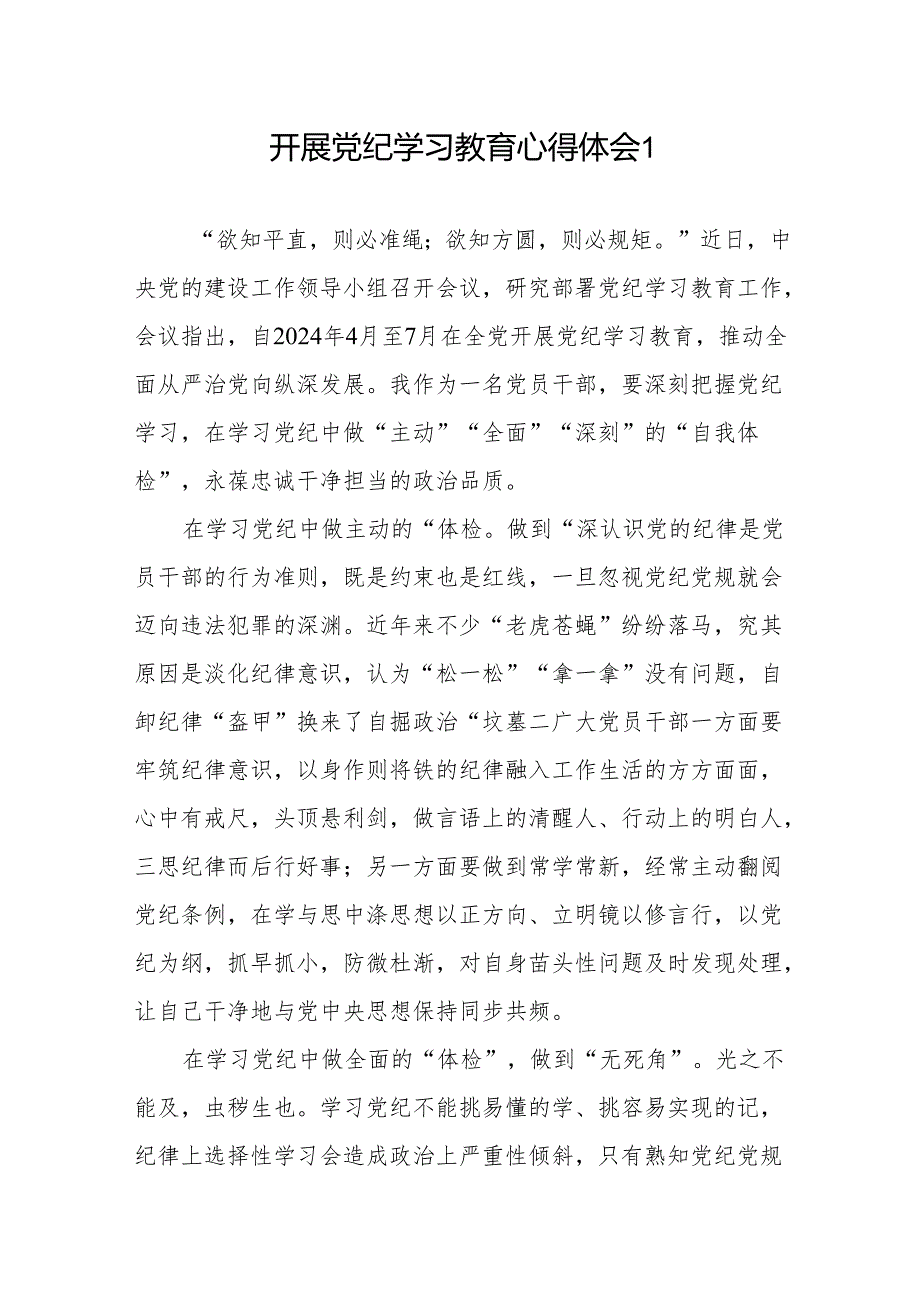 开展党纪学习教育心得体会1
“欲知平直，则必准绳；欲知方圆，则必规矩。”近日，中
央党的建设工作领导小组召开会议，研究部署党纪学习教育工作，
会议指出，自2024年4月至7月在全党开展党纪学习教育，推动全
面从严治党向纵深发展。我作为一名党员干部，要深刻把握党纪
学习，在学习党纪中做“主动”“全面”“深刻”的“自我体
检”，永葆忠诚干净担当的政治品质。
在学习党纪中做主动的“体检。做到“深认识党的纪律是党
员干部的行为准则，既是约束也是红线，一旦忽视党纪党规就会
迈向违法犯罪的深渊。近年来不少“老虎苍蝇”纷纷落马，究其
原因是淡化纪律意识，认为“松一松”“拿一拿”没有问题，自
卸纪律“盔甲”换来了自掘政治“坟墓二广大党员干部一方面要
牢筑纪律意识，以身作则将铁的纪律融入工作生活的方方面面，
心中有戒尺，头顶悬利剑，做言语上的清醒人、行动上的明白人，
三思纪律而后行好事；另一方面要做到常学常新，经常主动翻阅
党纪条例，在学与思中涤思想以正方向、立明镜以修言行，以党
纪为纲，抓早抓小，防微杜渐，对自身苗头性问题及时发现处理，
让自己干净地与党中央思想保持同步共频。
在学习党纪中做全面的“体检”，做到“无死角”。光之不
能及，虫秽生也。学习党纪不能挑易懂的学、挑容易实现的记，
纪律上选择性学习会造成政治上严重性倾斜，只有熟知党纪党规